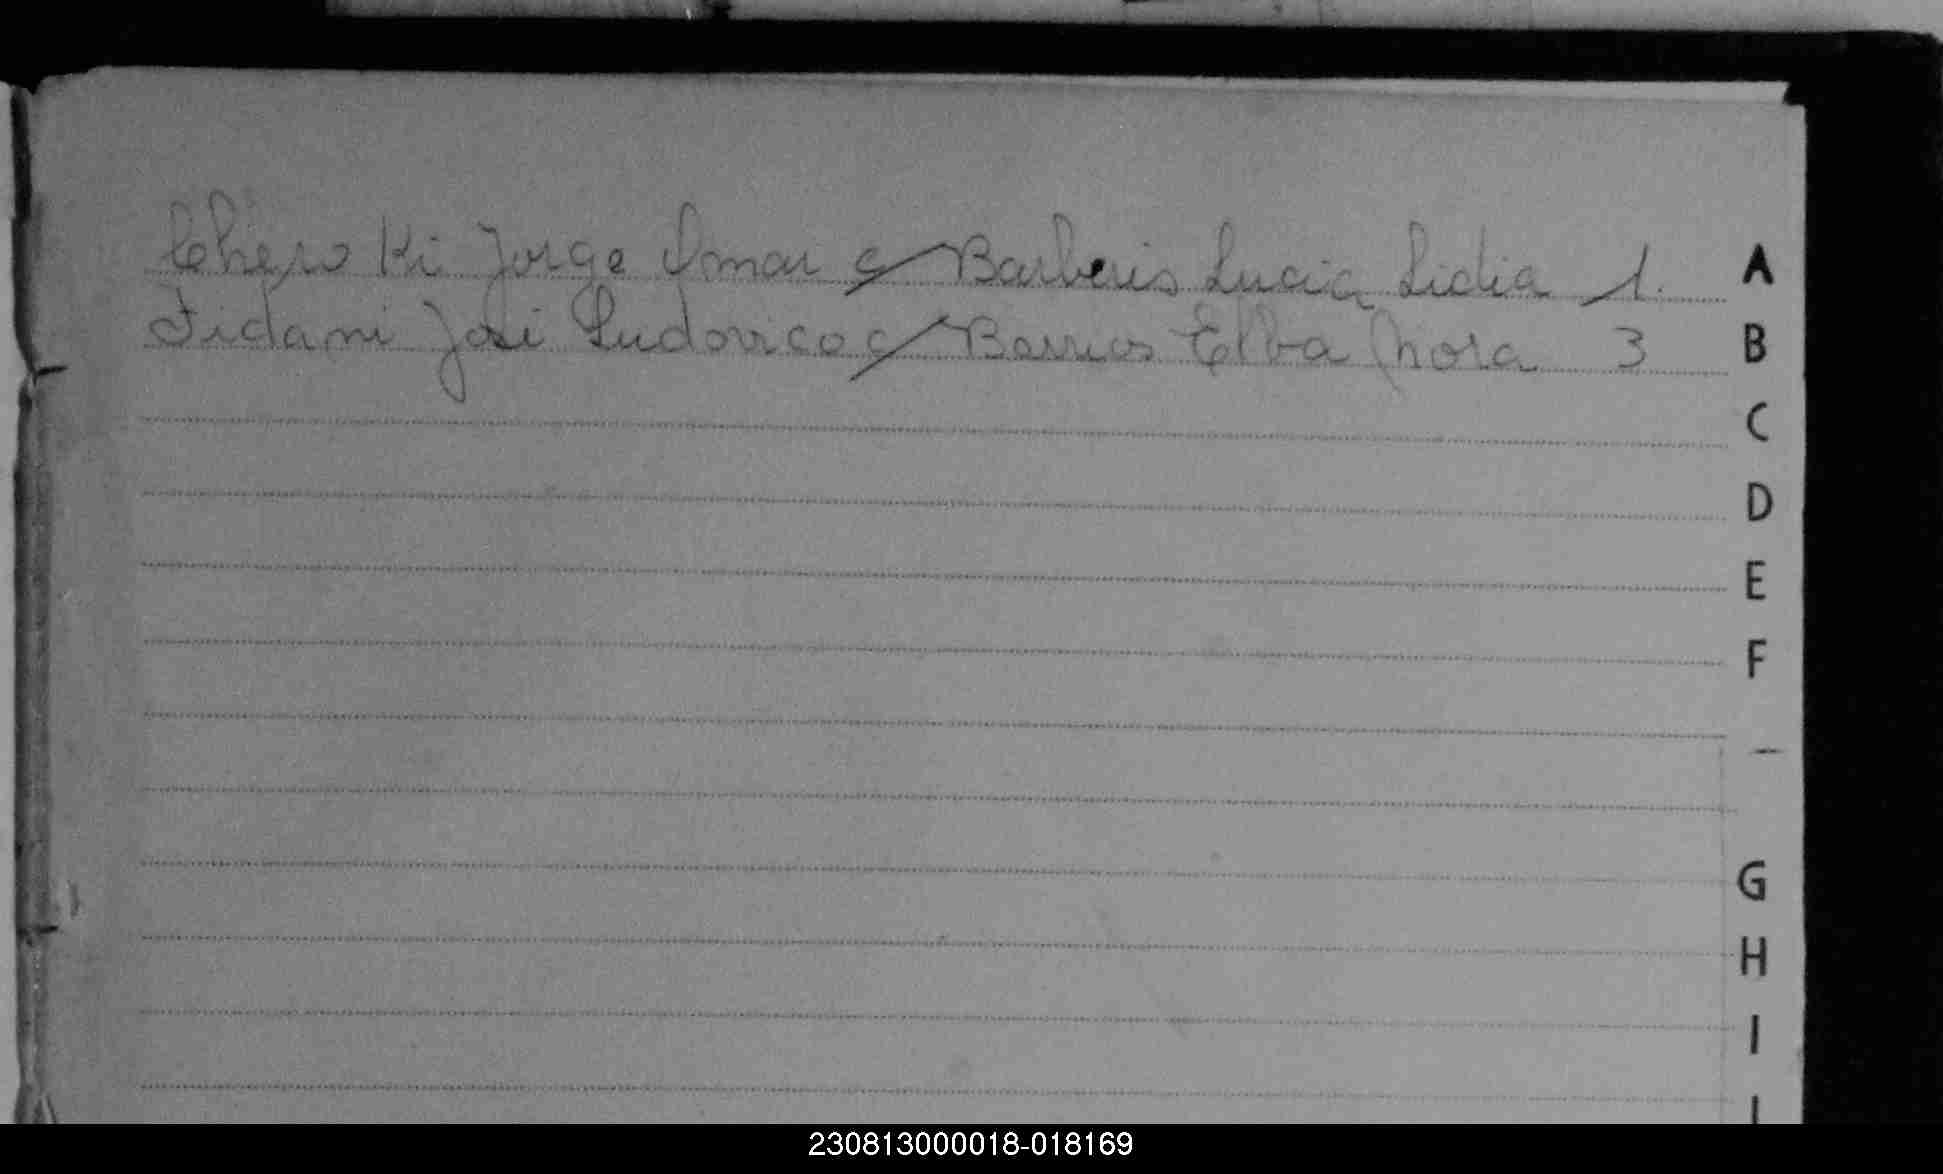 Cheroki Jorge Omar c/ Barberis Lucia Lidia 1.
Fidani José Ludovico c/ Barrios Elba Nora 3
A
B
C
D
E
F
G
H
I
230813000018-018169